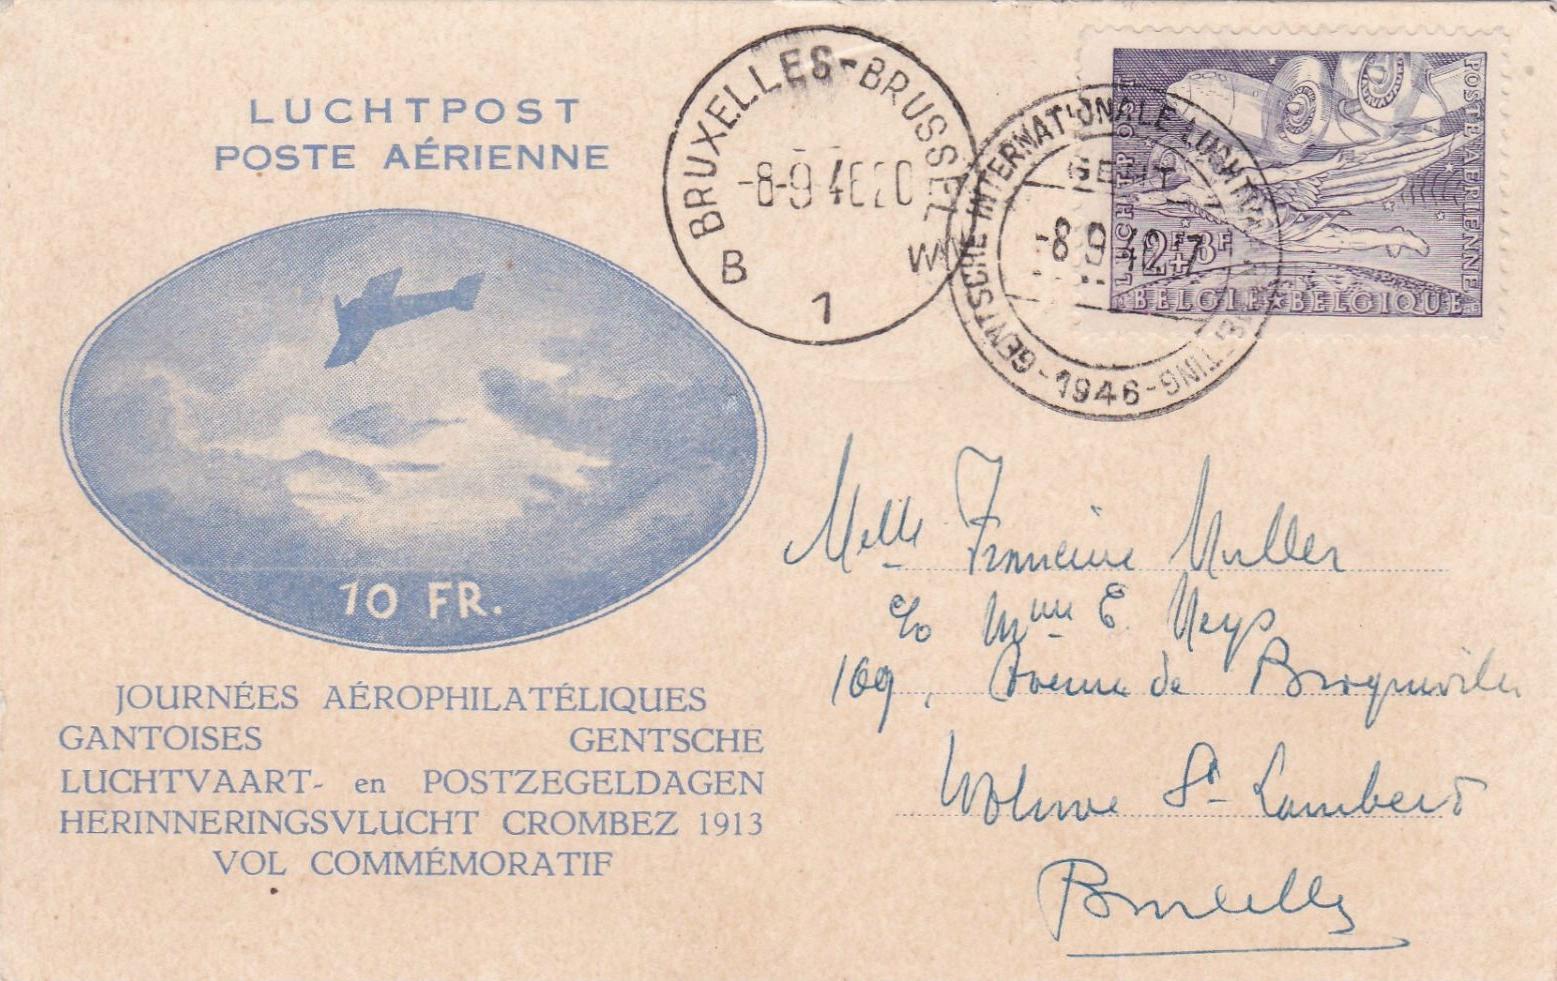 LUCHTPOST
POSTE AÉRIENNE
10 FR.
JOURNÉES AÉROPHILATÉLIQUES
GANTOISES GENTSCHE
LUCHTVAART- en POSTZEGELDAGEN
HERINNERINGSVLUCHT CROMBEZ 1913
VOL COMMÉMORATIF
BRUXELLES-BRUSSEL
-8-9 4620
B 1
GENTSCHE INTERNATIONALE
GENT
-1946-
LUCHTPOST
POSTE AERIENNE
2F+8F
BELGIE★BELGIQUE
Melle Francine Muller
c/o Mme E. Neys
169, Avenue de Broqueville
Woluwe St Lambert
Bruxelles